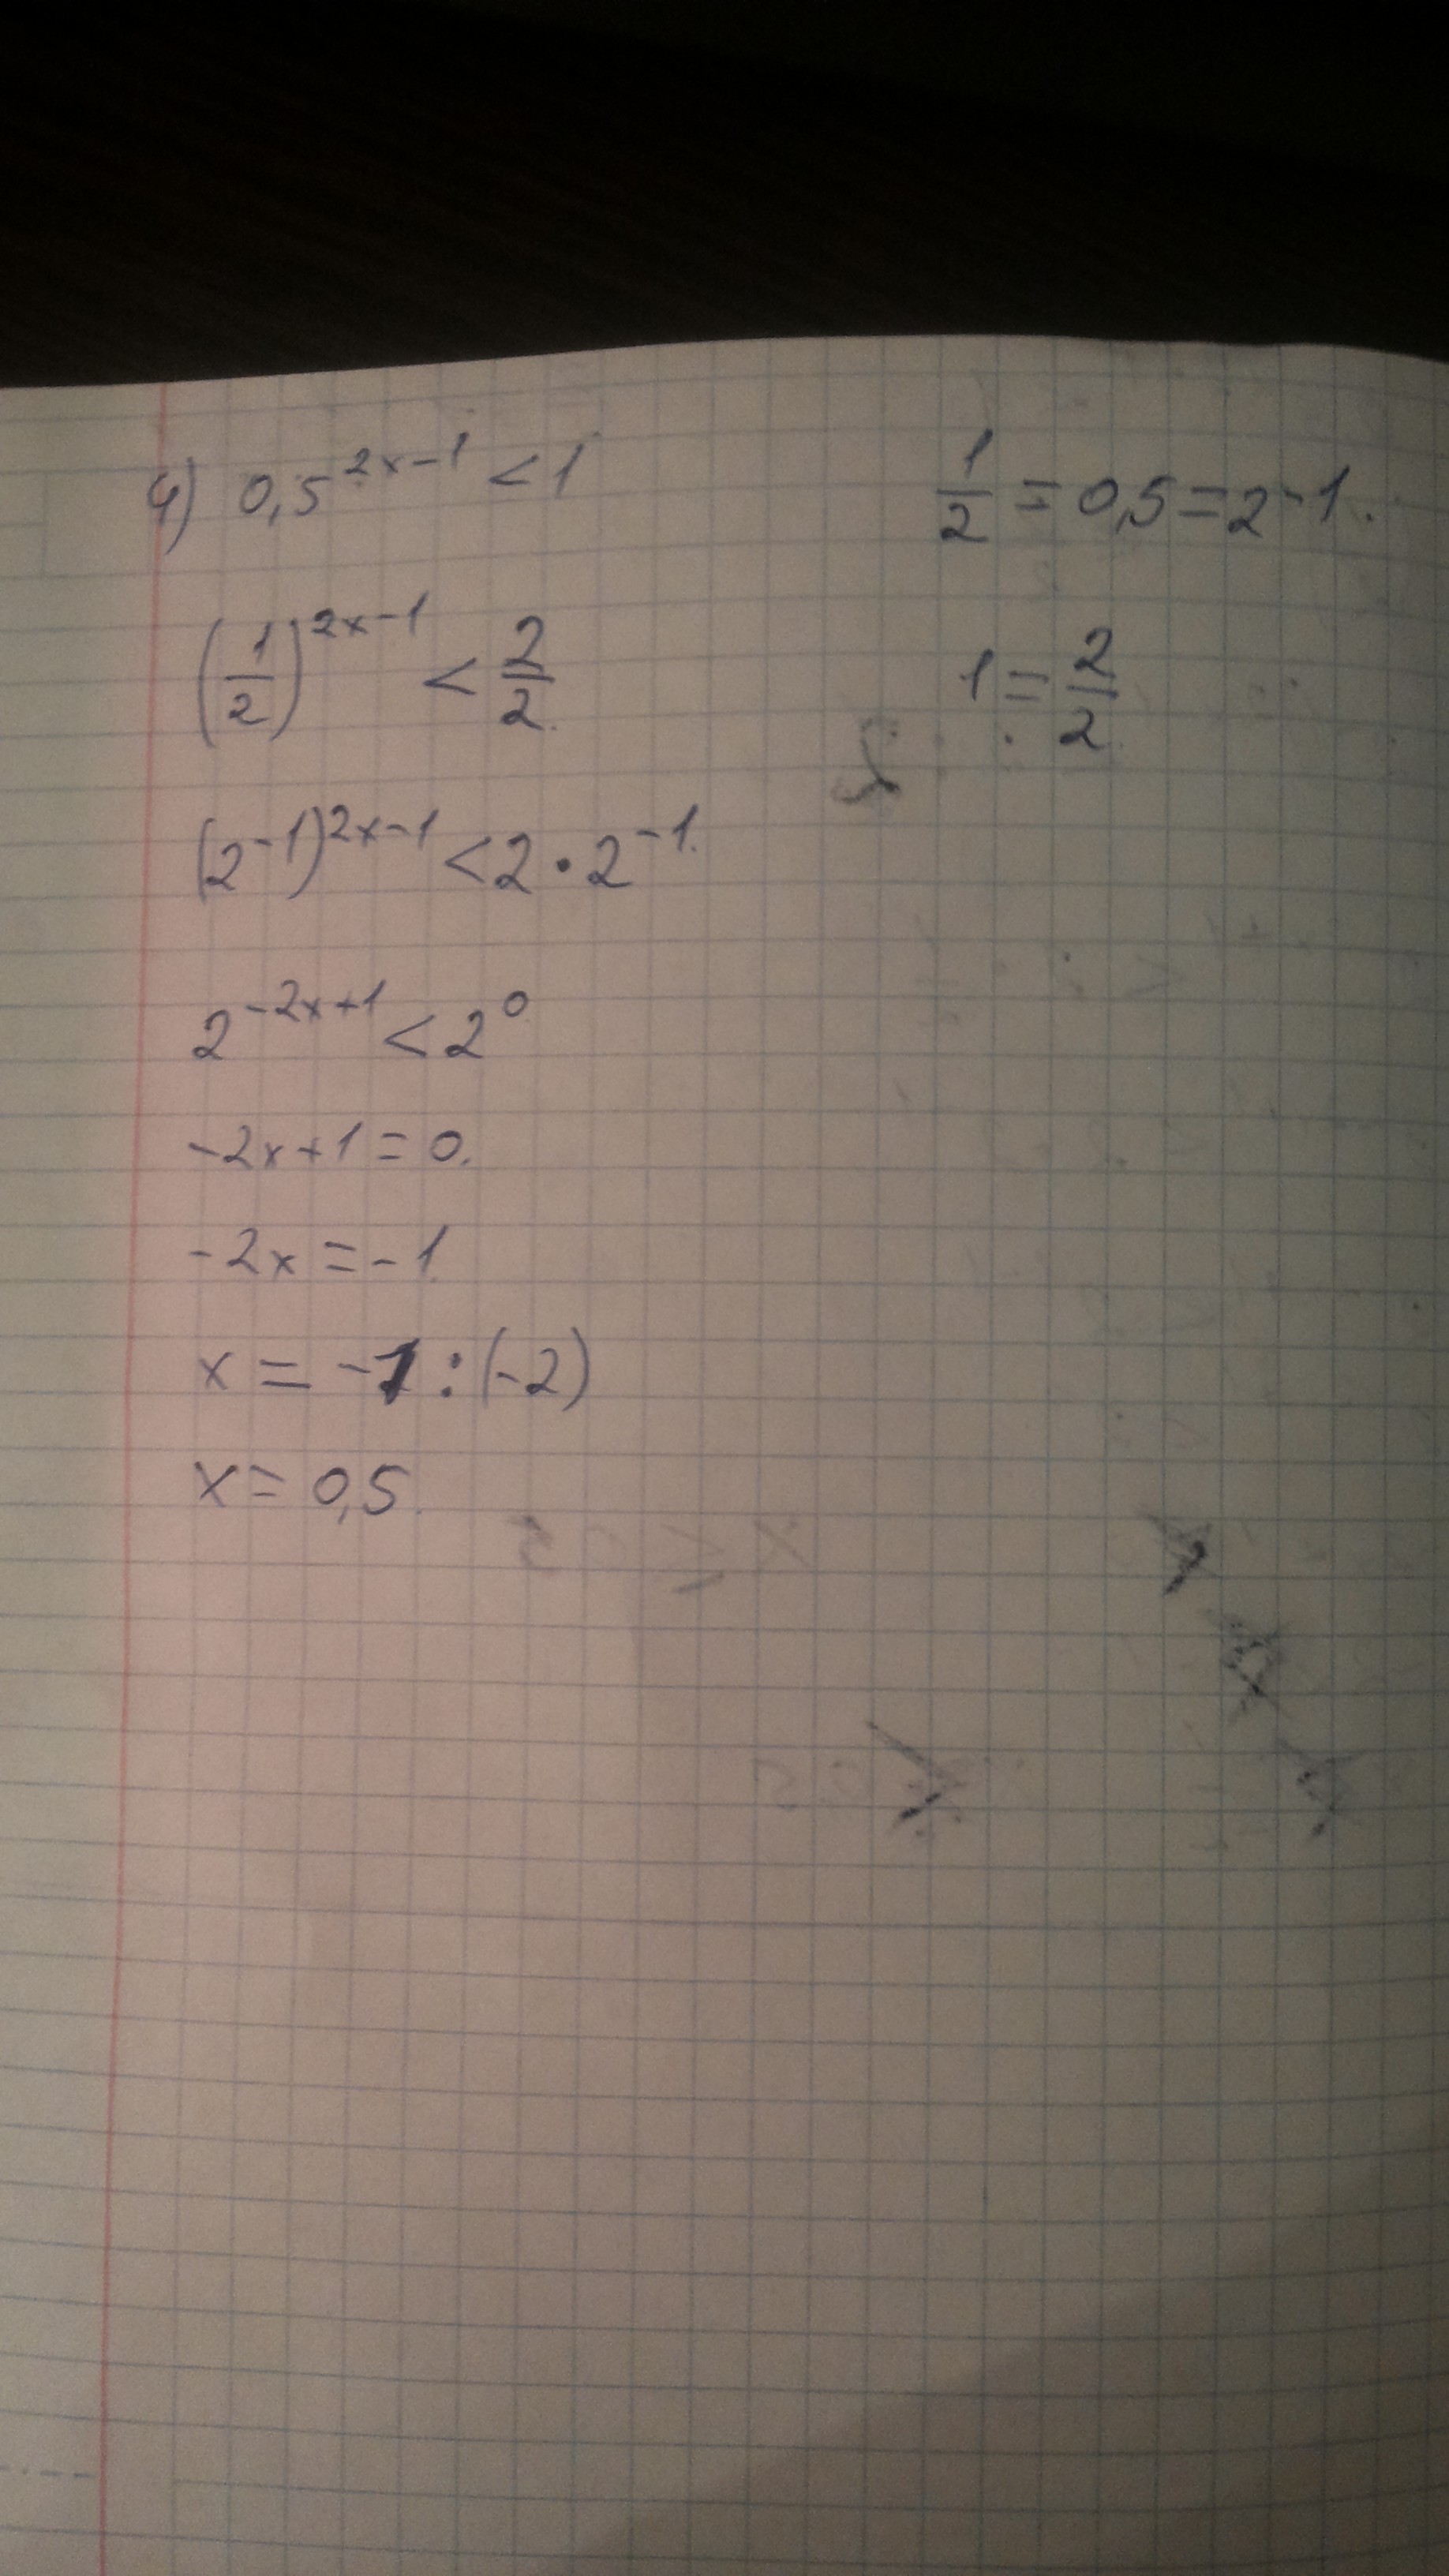 4) 0,5^{2x-1} < 1
(1/2)^{2x-1} < 2/2
(2^{-1})^{2x-1} < 2 · 2^{-1}
2^{-2x+1} < 2^0
-2x+1 = 0.
-2x = -1
x = -1 : (-2)
x = 0,5
1/2 = 0,5 = 2^{-1}.
1 = 2/2